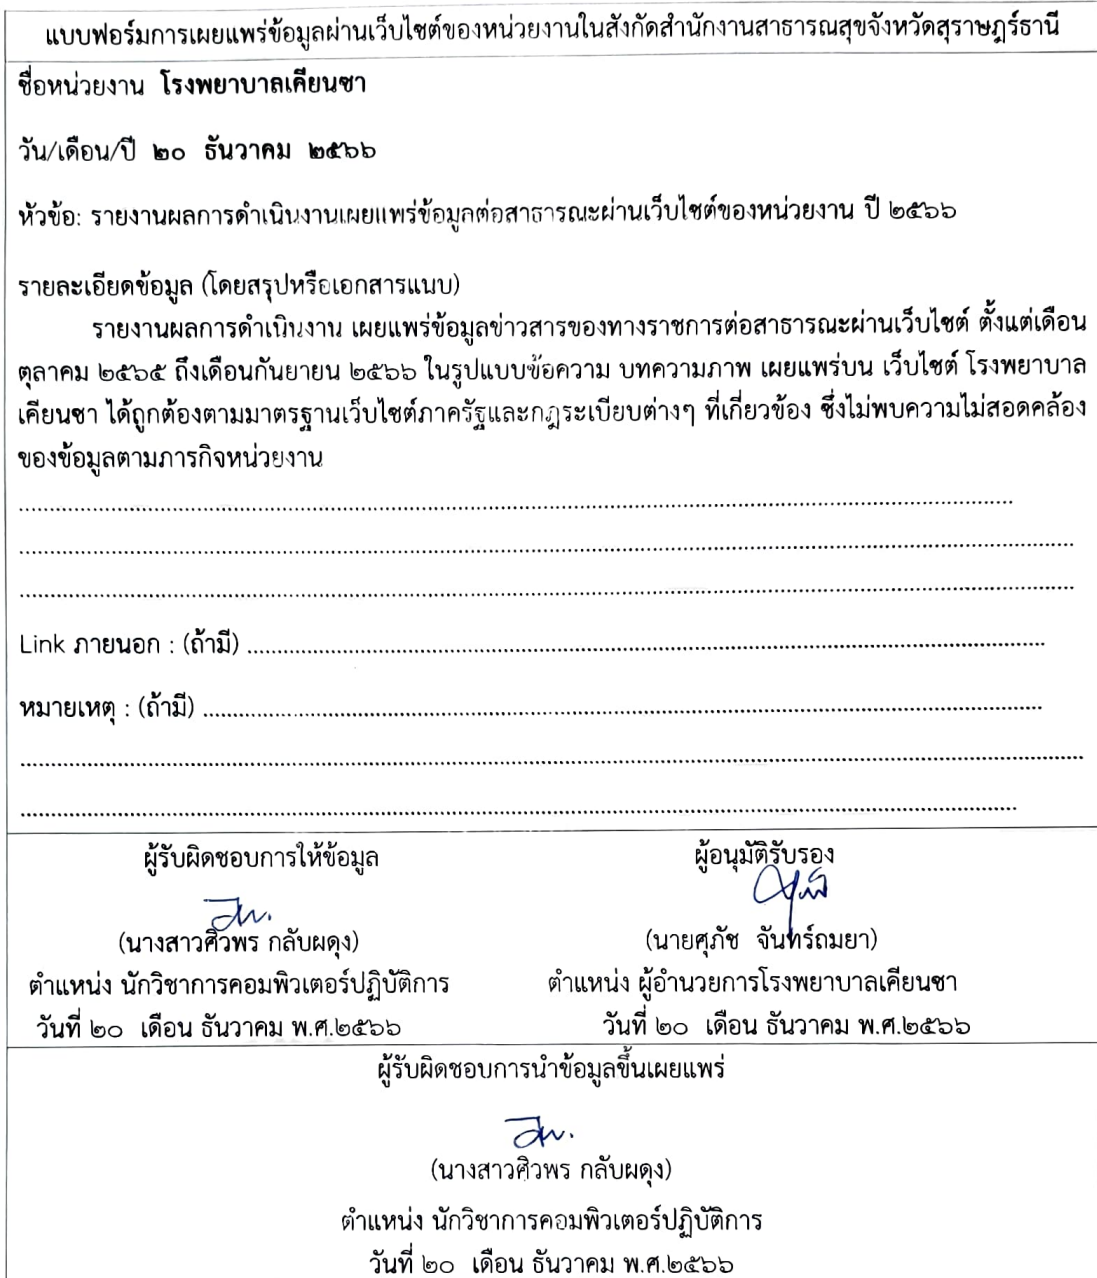 แบบฟอร์มการเผยแพร่ข้อมูลผ่านเว็บไซต์ของหน่วยงานในสังกัดสำนักงานสาธารณสุขจังหวัดสุราษฎร์ธานี
ชื่อหน่วยงาน โรงพยาบาลเคียนซา
วัน/เดือน/ปี ๒๐ ธันวาคม ๒๕๖๖
หัวข้อ: รายงานผลการดำเนินงานเผยแพร่ข้อมูลต่อสาธารณะผ่านเว็บไซต์ของหน่วยงาน ปี ๒๕๖๖
รายละเอียดข้อมูล (โดยสรุปหรือเอกสารแนบ)
รายงานผลการดำเนินงาน เผยแพร่ข้อมูลข่าวสารของทางราชการต่อสาธารณะผ่านเว็บไซต์ ตั้งแต่เดือน
ตุลาคม ๒๕๖๕ ถึงเดือนกันยายน ๒๕๖๖ ในรูปแบบข้อความ บทความภาพ เผยแพร่บน เว็บไซต์ โรงพยาบาล
เคียนซา ได้ถูกต้องตามมาตรฐานเว็บไซต์ภาครัฐและกฎระเบียบต่างๆ ที่เกี่ยวข้อง ซึ่งไม่พบความไม่สอดคล้อง
ของข้อมูลตามภารกิจหน่วยงาน
Link ภายนอก : (ถ้ามี) ........................................................................
หมายเหตุ : (ถ้ามี) ........................................................................
ผู้รับผิดชอบการให้ข้อมูล
(นางสาวศิวพร กลับผดุง)
ตำแหน่ง นักวิชาการคอมพิวเตอร์ปฏิบัติการ
วันที่ ๒๐ เดือน ธันวาคม พ.ศ.๒๕๖๖
ผู้อนุมัติรับรอง
(นายศุภัช จันทร์ถมยา)
ตำแหน่ง ผู้อำนวยการโรงพยาบาลเคียนซา
วันที่ ๒๐ เดือน ธันวาคม พ.ศ.๒๕๖๖
ผู้รับผิดชอบการนำข้อมูลขึ้นเผยแพร่
(นางสาวศิวพร กลับผดุง)
ตำแหน่ง นักวิชาการคอมพิวเตอร์ปฏิบัติการ
วันที่ ๒๐ เดือน ธันวาคม พ.ศ.๒๕๖๖